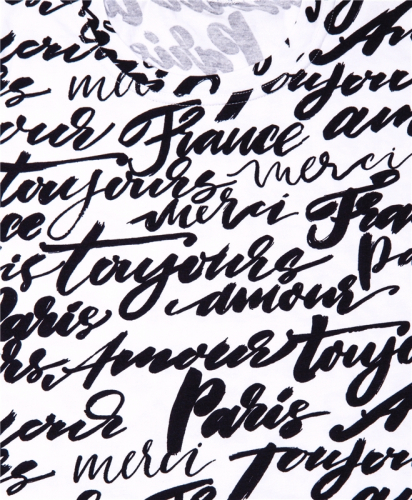 merci
Toujours
amour
France am
our
toujours merci
ce merci Fran
is toujours pa
amour
Paris
rs Amour toujo
Paris
our A
merci Toujou